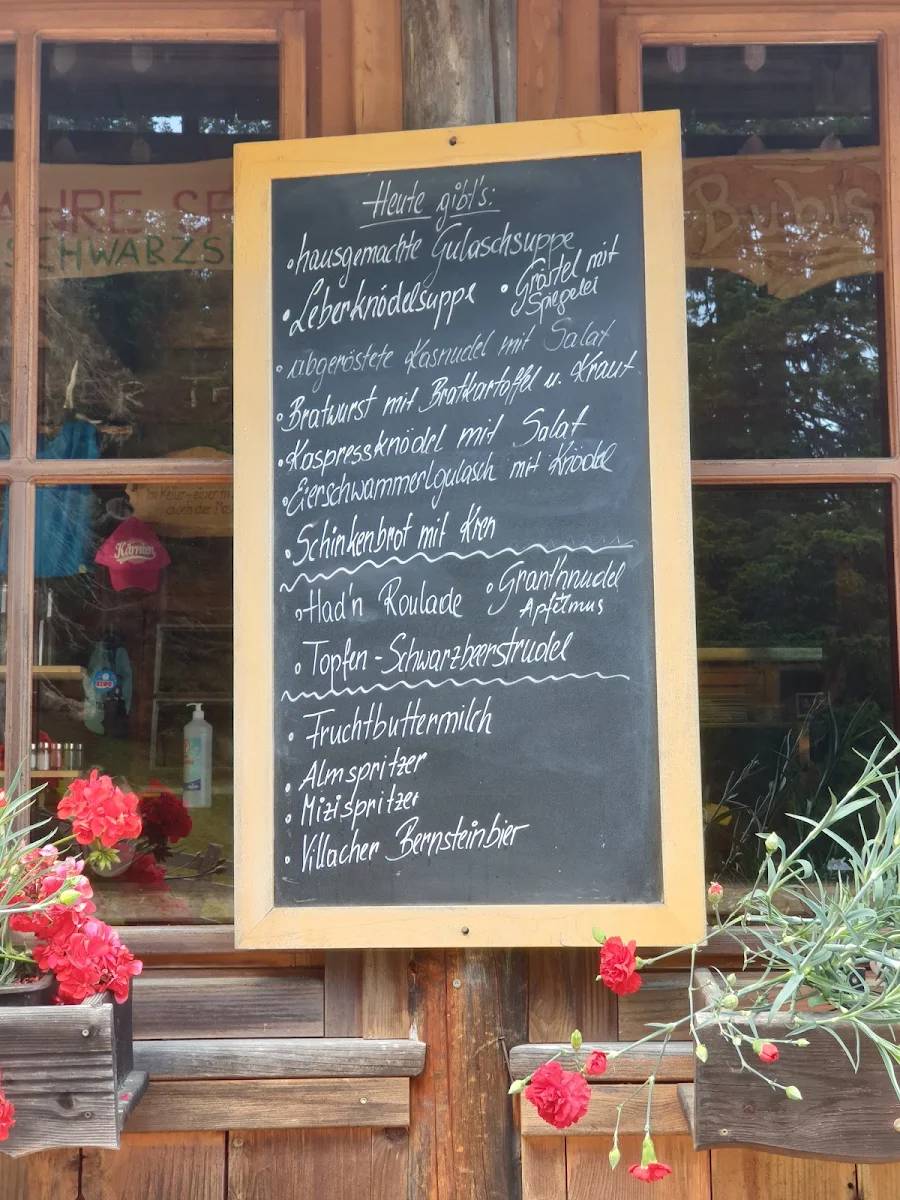 Heute gibt's:
• hausgemachte Gulaschsuppe
• Leberknödelsuppe
• Gröstel mit
Spiegelei
• abgeröstete Kasnudel mit Salat
• Bratwurst mit Bratkartoffel u. Kraut
• Kaspressknödel mit Salat
• Eierschwammerlgulasch mit Knödel
• Schinkenbrot mit Kren
• Had'n Roulade
• Grant'nnudel
Apfelmus
• Topfen-Schwarzbeerstrudel
• Fruchtbuttermilch
• Almspritzer
• Mizispritzer
• Villacher Bernsteinbier
Bubis
Kärnten